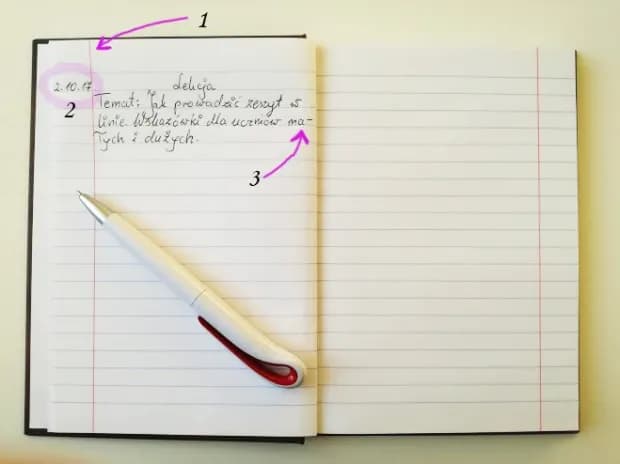 1
2.10.17 Lekcja
2 Temat: Jak prowadzić zeszyt w
linie. Wskazówki dla uczniów ma-
łych i dużych.
3